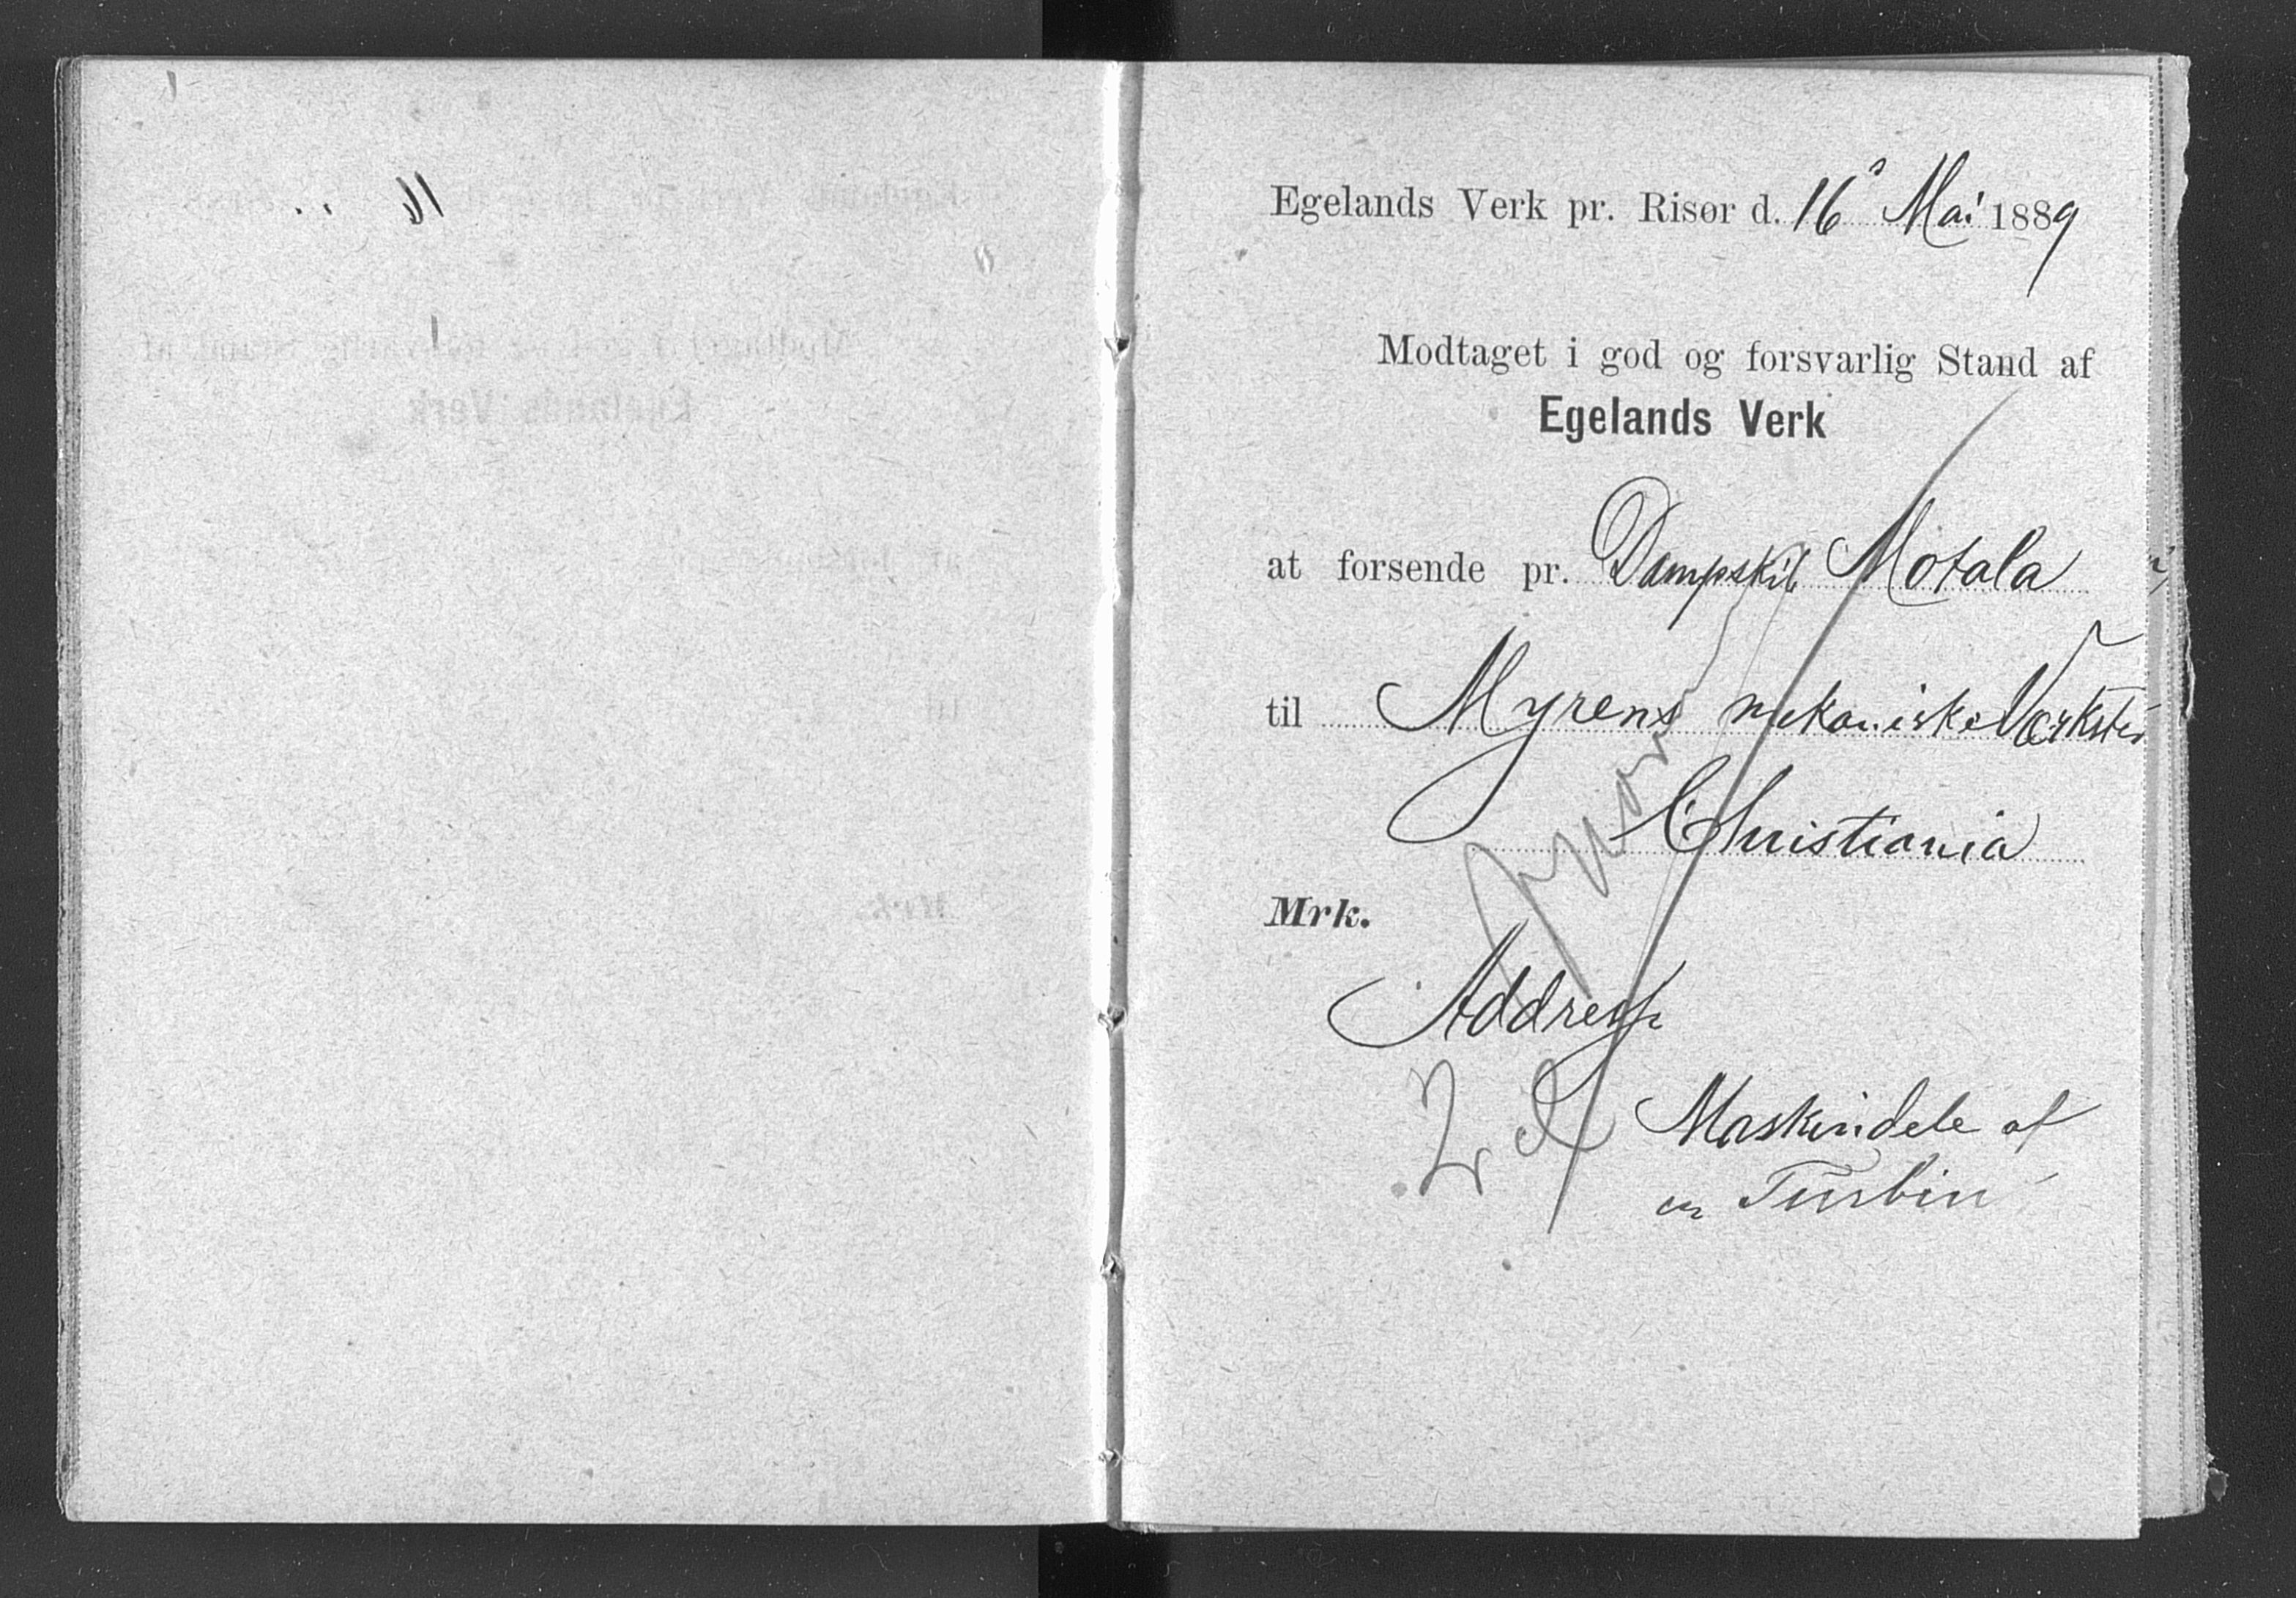 Egelands Verk pr. Risør d. 16 Mai 1889
Modtaget i god og forsvarlig Stand af
Egelands Verk
at forsende pr. Dampskib Motala
til Myrens mekaniske Værksted
Christiania
Mrk.
Address
Maskindele af
en Turbin